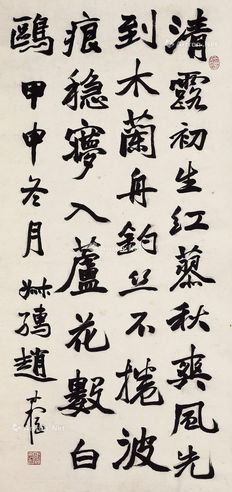 清露初生红蓼秋爽风先
到木蘭舟釣丝不捲波
痕穏夢入蘆花數白
鷗甲申冬月叔孺趙